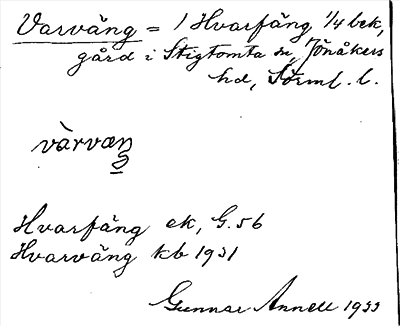 Varväng = 1 Hvarfäng 1/4 bek,
gård i Stigtomta sn, Jönåkers
hd, Sörml. l.
vàrvæŋ
Hvarfäng ek, G. 56
Hvarväng kb 1931
Gunnar Annell 1933